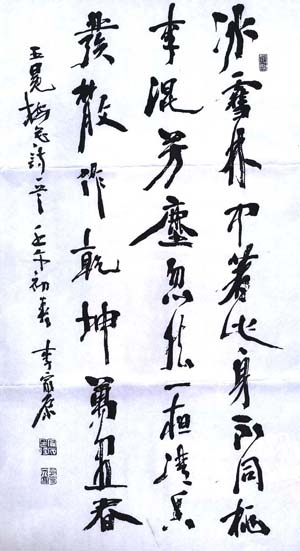 冰雪林中著此身不同桃
李混芳塵忽然一清香
發散作乾坤萬里春
王冕梅花詩一首 壬午初春 李家康